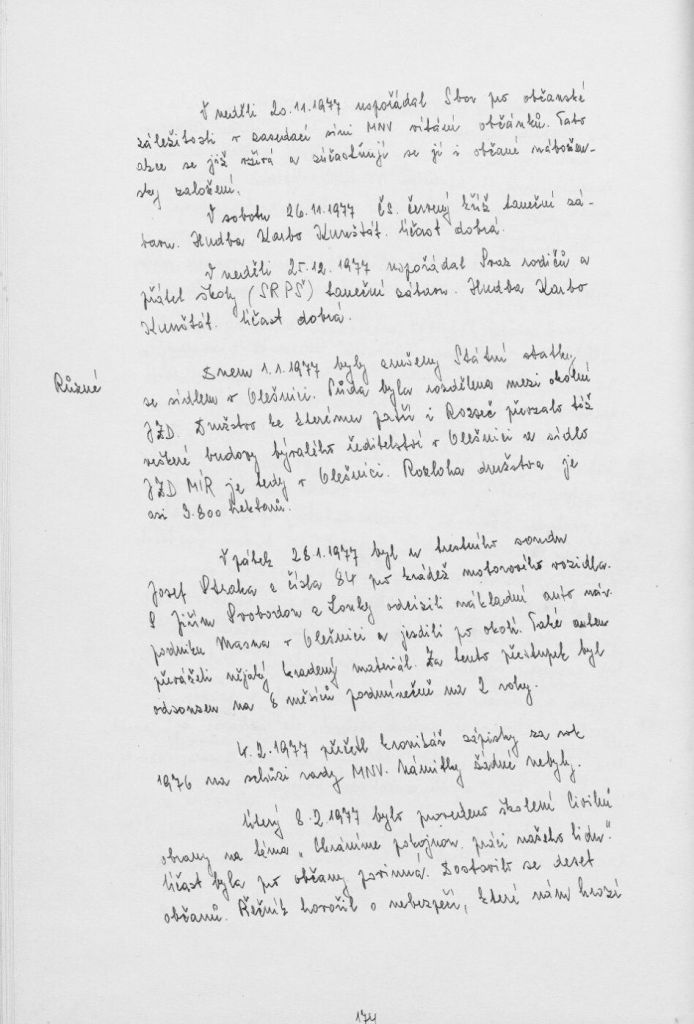 V neděli 20.11.1977 uspořádal Sbor pro občanské
záležitosti v zasedací síni MNV vítání občánků. Tato
akce se již vžívá a zúčastňují se jí i občané nábožen-
sky založení.
V sobotu 26.11.1977 čs. červený kříž taneční zá-
bavu. Hudba Karbo Kunštát. Účast dobrá.
V neděli 25.12.1977 uspořádal Svaz rodičů a
přátel školy (SRPŠ) taneční zábavu. Hudba Karbo
Kunštát. Účast dobrá.
Různé
Dnem 1.1.1977 byly zrušeny Státní statky
se sídlem v Olešnici. Půda byla rozdělena mezi okolní
JZD. Družstvo ke kterému patří i Rozseč převzalo též
veškeré budovy bývalého ředitelství v Olešnici a sídlo
JZD MÍR je tedy v Olešnici. Rozloha družstva je
asi 3.800 hektarů.
V pátek 28.1.1977 byl u trestního soudu
Josef Straka z čísla 84 pro krádež motorového vozidla.
S Jiřím Svobodou z Louky odcizili nákladní auto nár.
podniku Masna v Olešnici a jezdili po okolí. Také autem
převáželi nějaký kradený materiál. Za tento přestupek byl
odsouzen na 8 měsíců podmínečně na 2 roky.
4.2.1977 přečetl kronikář zápisky za rok
1976 na schůzi rady MNV. Námitky žádné nebyly.
Úterý 8.2.1977 bylo provedeno školení Civilní
obrany na téma „Chráníme pokojnou práci našeho lidu".
Účast byla pro občany povinná. Dostavilo se deset
občanů. Řečník hovořil o nebezpečí, které nám hrozí
174